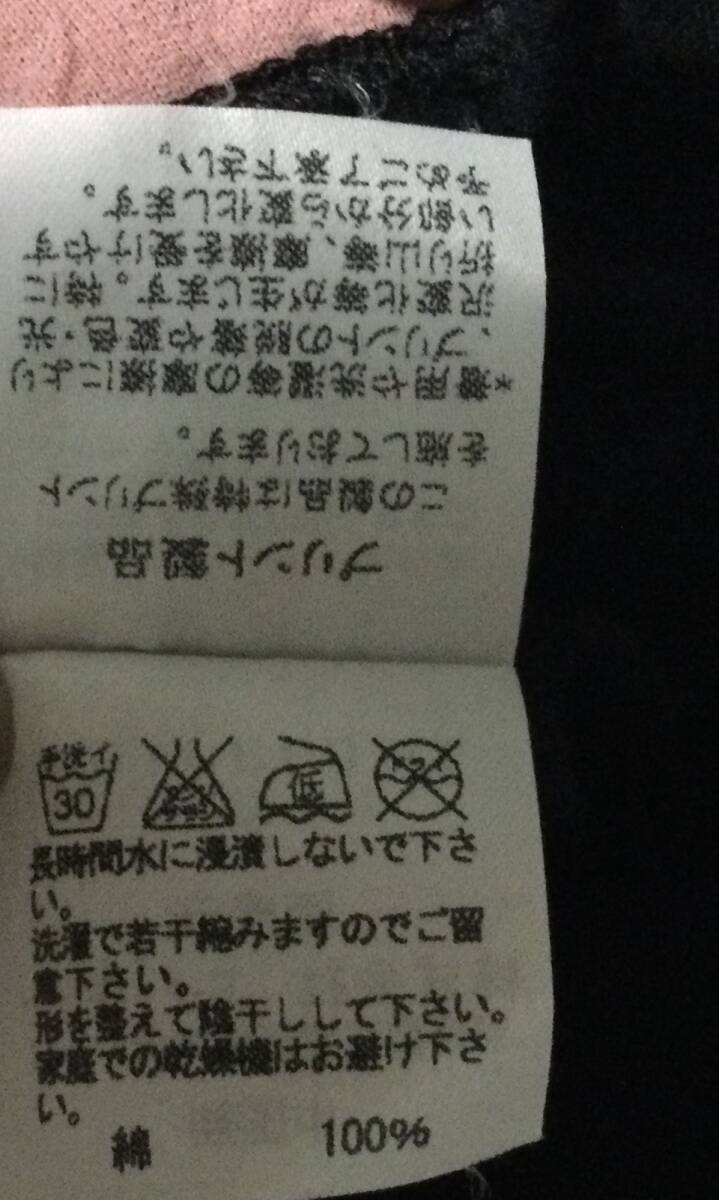 プリント製品
この製品は特殊プリント
を施しております。
*着用や洗濯等の摩擦により
、プリントの脱落や変色・光
沢変化等が生じます。特に
折り山等、摩擦を受けやす
い部分から変化します。
予めご了承下さい。
手洗イ
30
エンソ
サラシ
低
ドライ
長時間水に浸漬しないで下さ
い。
洗濯で若干縮みますのでご留
意下さい。
形を整えて陰干しして下さい。
家庭での乾燥機はお避け下さ
い。
綿 100%